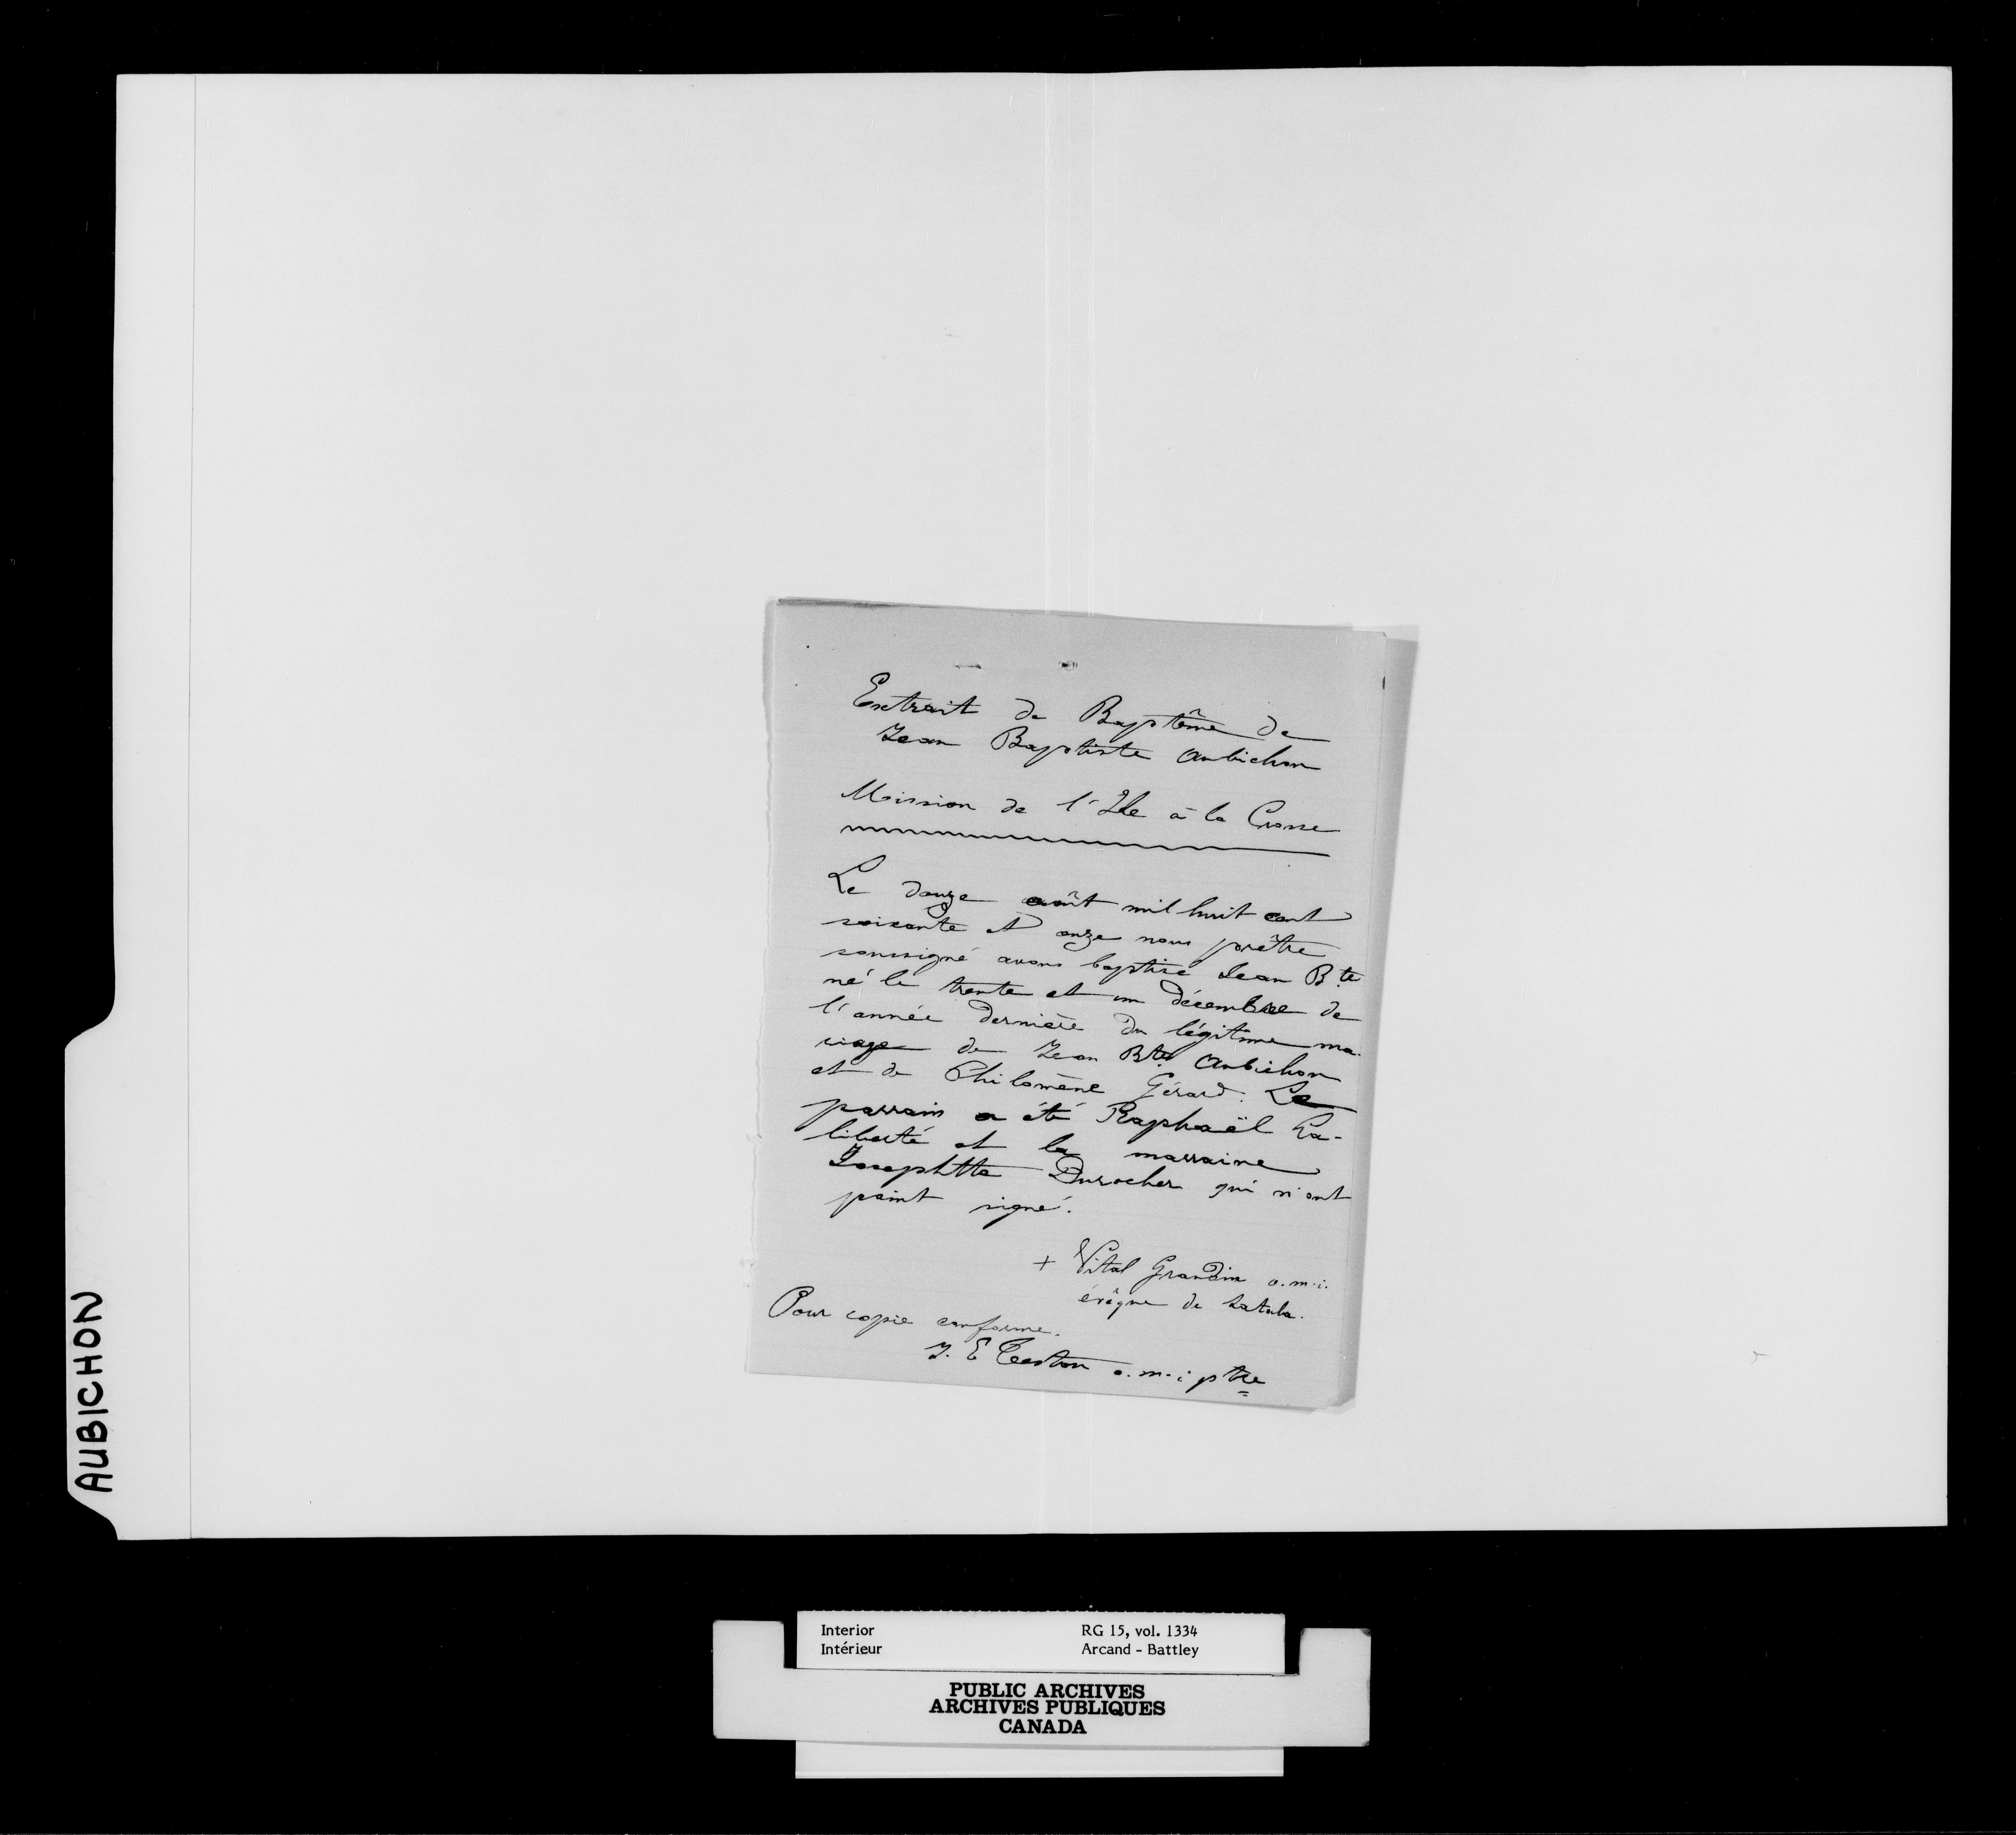 Extrait de Baptême de
Jean Baptiste Aubichon
Mission de l'Ile à la Crosse
Le douze août mil huit cent
soixante et onze nous prêtre
soussigné avons baptisé Jean Bte
né le trente et un décembre de
l'année dernière du légitime ma-
riage de Jean Bte Aubichon
et de Philomène Gérard. Le
parrain a été Raphaël La-
liberté et la marraine
Josephtte Durocher qui n'ont
point signé.
+ Vital Grandin o.m.i.
évêque de Satala.
Pour copie conforme.
J. E Teston o.m.i ptre
AUBICHON
Interior RG 15, vol. 1334
Intérieur Arcand - Battley
PUBLIC ARCHIVES
ARCHIVES PUBLIQUES
CANADA